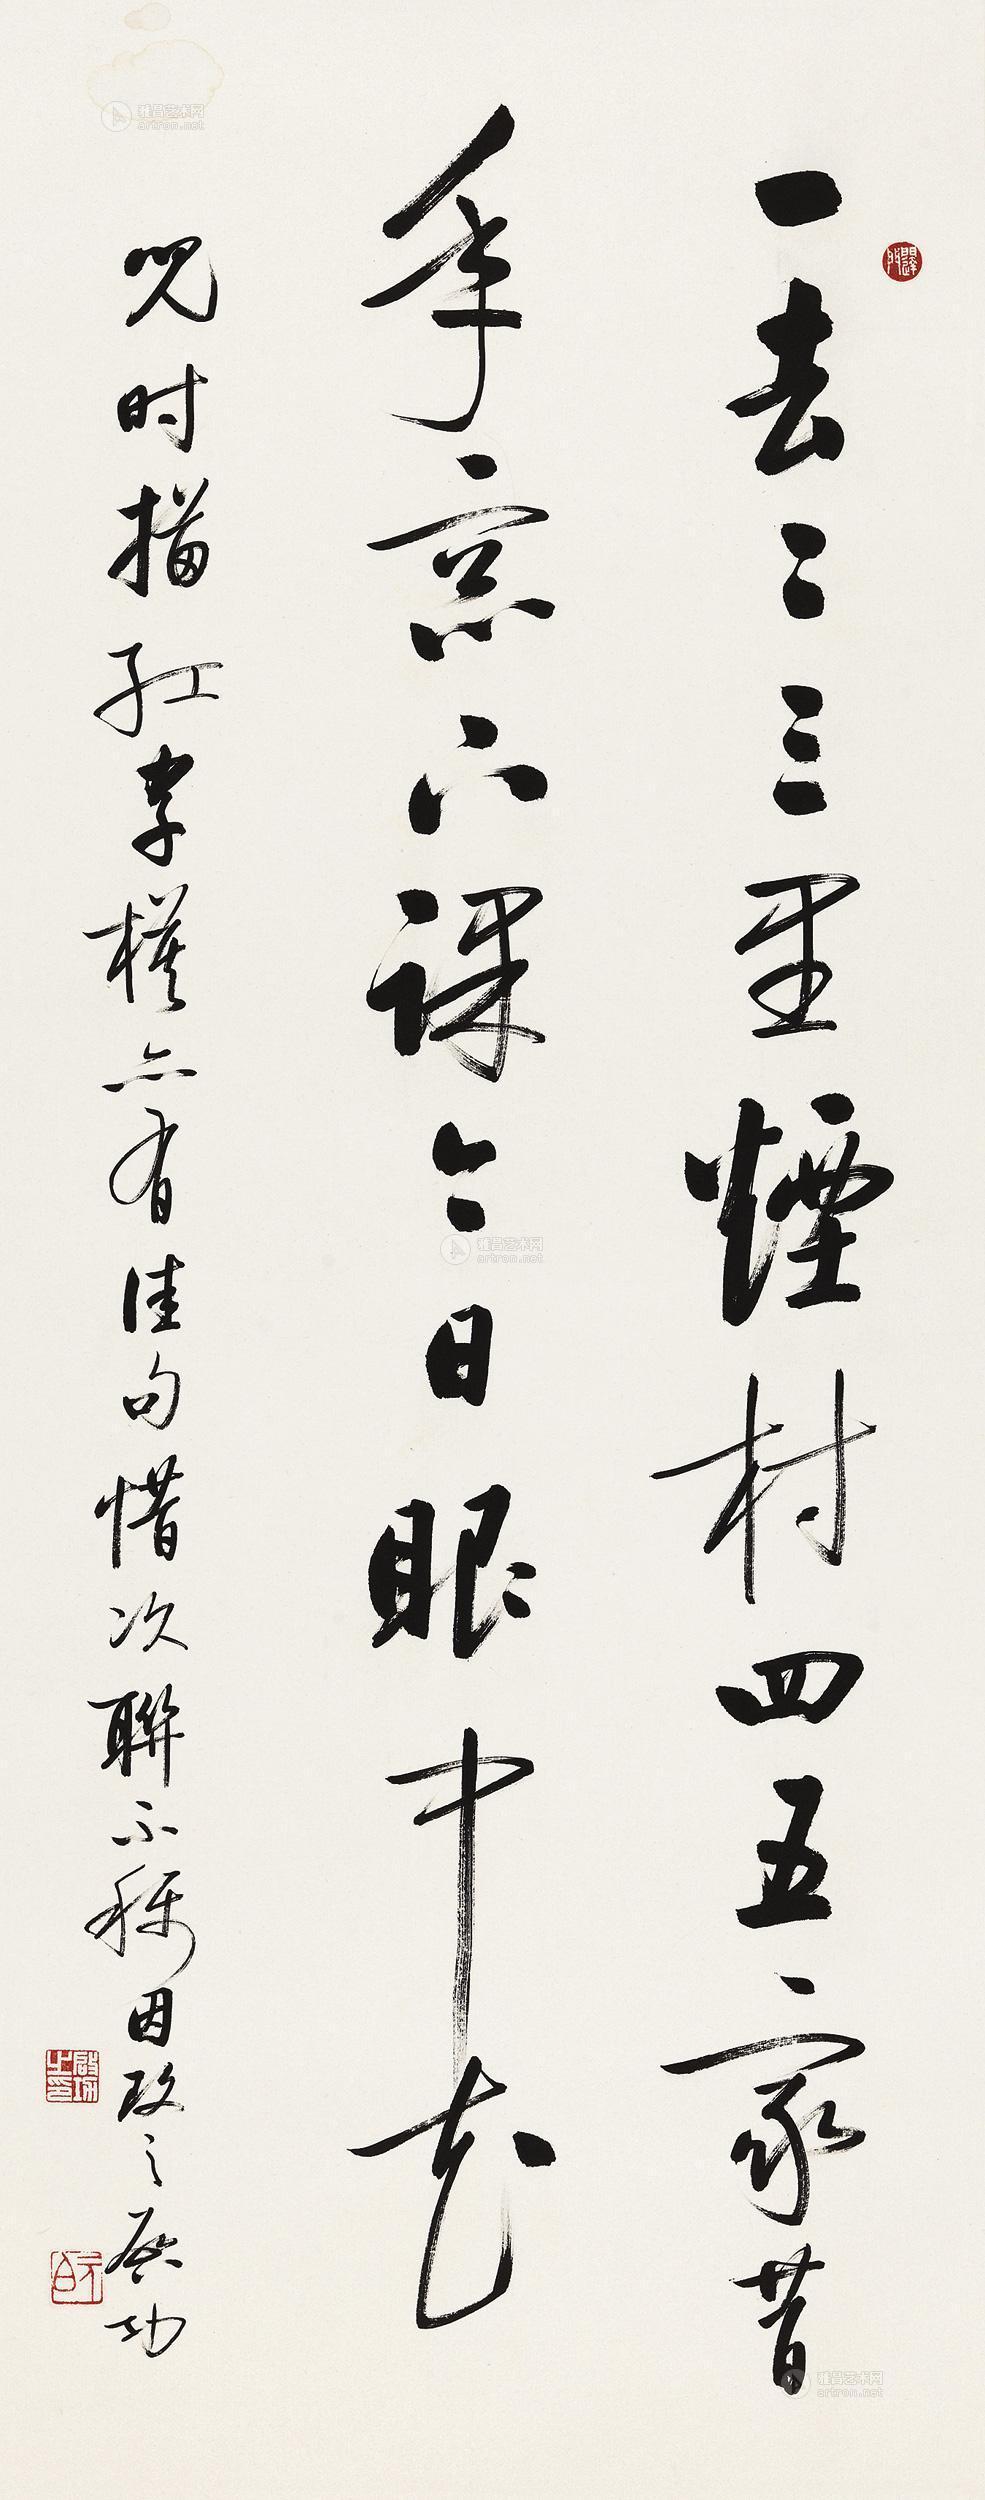 一去二三里煙村四五家昔
年窓下課今日眼中花
兒时描红字模亦有佳句惜次聯不稱因改之啟功
啟功之印
元白
雅昌艺术网
artron.net
雅昌艺术网
artron.net
雅昌艺术网
artron.net